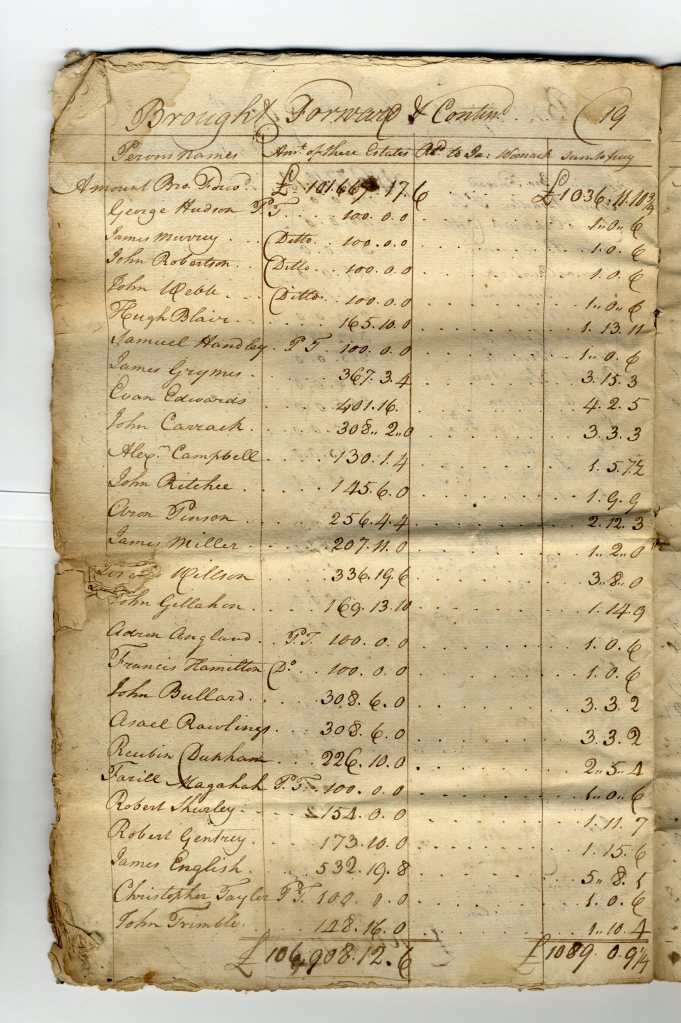 Brought Forward & Contind 19
Persons names Amt. of there Estates Pd. to Ja: Womack Sum to pay
Amount Bro. Forwd. £ 101669.17.6 £1036.11.10¾
George Hudson P T. 100.0.0 1.0.6
James Murrey (Ditto. 100.0.0 1.0.6
John Robertson (Ditto. 100.0.0 1.0.6
John Webb (Ditto 100.0.0 1.0.6
Hugh Blair 165.10.0 1.13.11
Samuel Handley P.T. 100.0.0 1.0.6
James Grymes 367.3.4 3.15.3
Evan Edwards 401.16. 4.2.5
John Carrack 308.2.0 3.3.3
Alexr. Campbell 130.1.4 1.5.7½
John Ritchee 145.6.0 1.9.9
Aron Pinson 256.4.4 2.12.3
James Miller 207.11.0 1.2.0
Willson 336.19.6 3.8.0
John Gillahon 169.13.10 1.14.9
Adren Angland P.T. 100.0.0 1.0.6
Francis Hamilton Do. 100.0.0 1.0.6
John Bullard 308.6.0 3.3.2
Asael Rawlings 308.6.0 3.3.2
Reubin Dunham 226.10.0 2.5.4
Farill Magahah P.T. 100.0.0 1.0.6
Robert Shurley 154.0.0 1.11.7
Robert Gentrey 173.10.0 1.15.6
James English 532.19.8 5.8.1
Christopher Tayler P.T. 100.0.0 1.0.6
John Trimble 148.16.0 1.10.4
£ 106,908.12.6 £1089.0.9¼